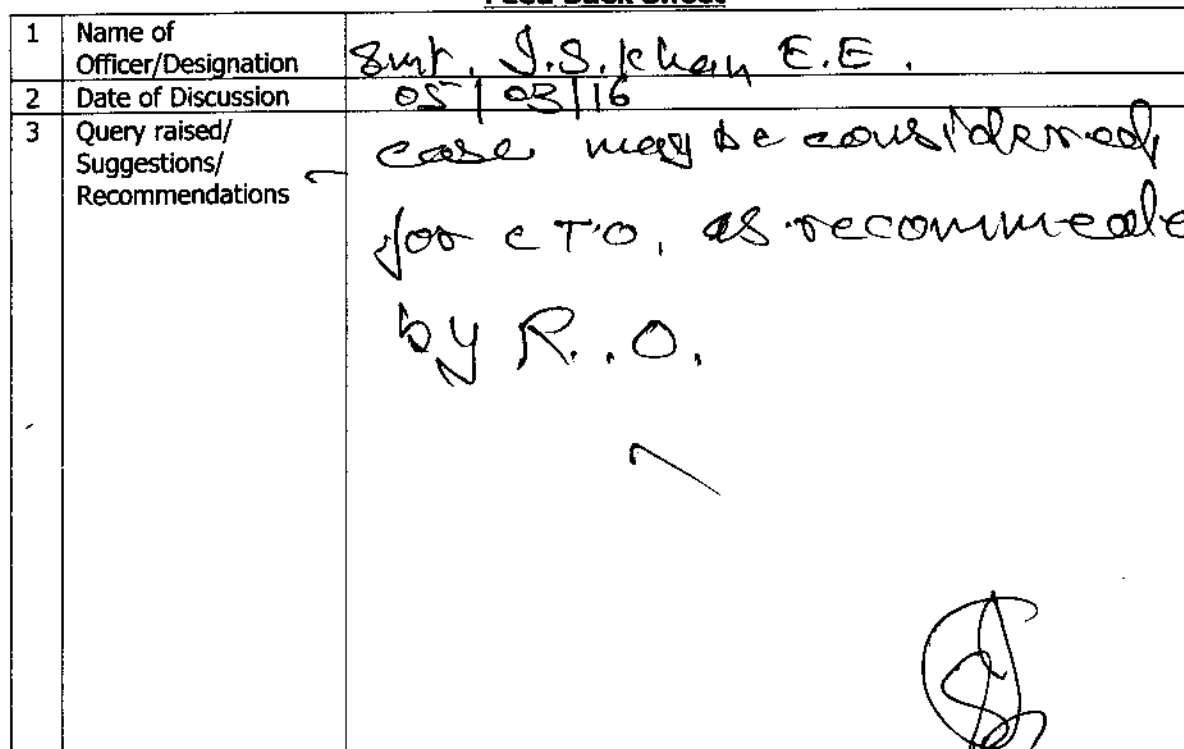 Feed Back Sheet
1 Name of
Officer/Designation Smt. I.S. Khan E.E.
2 Date of Discussion 05/03/16
3 Query raised/
Suggestions/
Recommendations
case may be considered
for CTO, as recommende
by R.O.